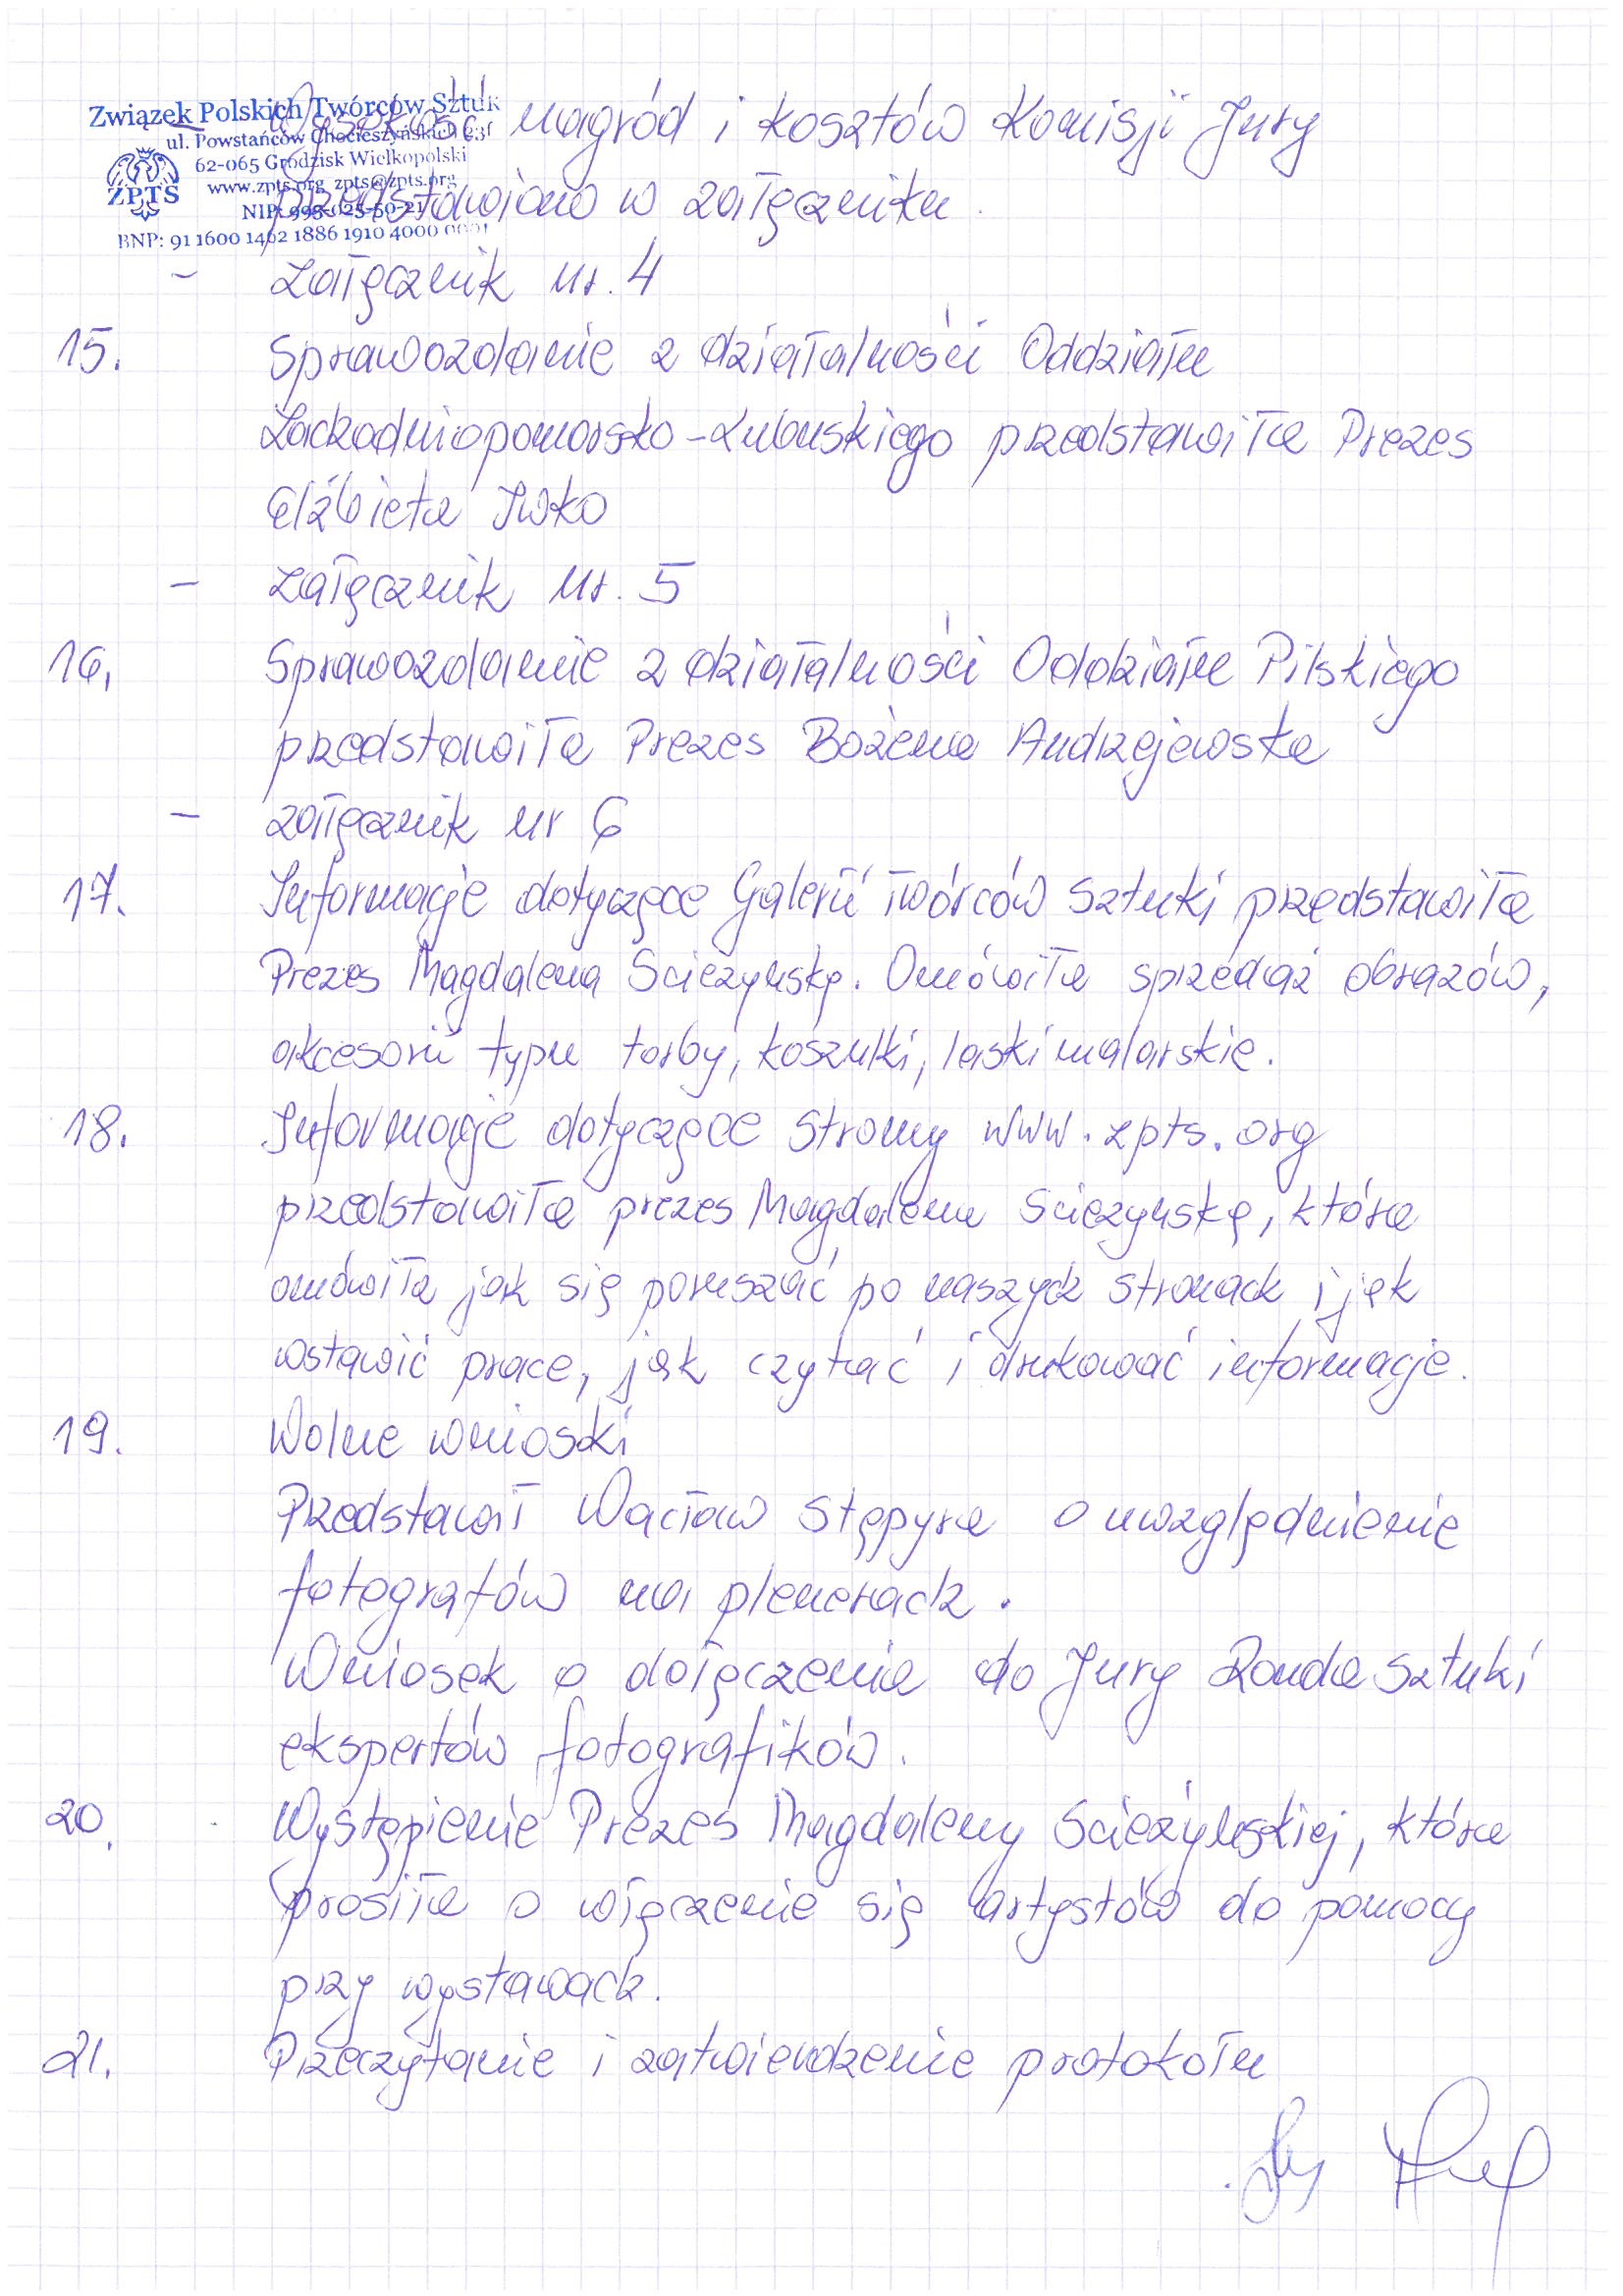 Związek Polskich Twórców Sztuk
ul. Powstańców Chocieszyńskich 23f
62-065 Grodzisk Wielkopolski
www.zpts.org zpts@zpts.org
ZPTS
NIP: 995-025-50-21
BNP: 91 1600 1462 1886 1910 4000 0001
Wysokość nagród i kosztów Komisji Jury
przedstawiono w załączniku.
- Załącznik nr. 4
15. Sprawozdanie z działalności Oddziału
Zachodniopomorsko-Lubuskiego przedstawiła Prezes
Elżbieta Iwko
- Załącznik nr. 5
16. Sprawozdanie z działalności Oddziału Pilskiego
przedstawiła Prezes Bożena Andrzejewska
- załącznik nr 6
17. Informacje dotyczące Galerii Twórców Sztuki przedstawiła
Prezes Magdalena Ścieżyńska. Omówiła sprzedaż obrazów,
akcesorii typu torby, koszulki, laski malarskie.
18. Informacje dotyczące strony www.zpts.org
przedstawiła prezes Magdalena Ścieżyńska, która
omówiła jak się poruszać po naszych stronach i jak
wstawić prace, jak czytać i drukować informacje.
19. Wolne wnioski
Przedstawił Wacław Stępyra o uwzględnienie
fotografów na plenerach.
Wniosek o dołączenia do Jury Ronda Sztuki
ekspertów fotografików.
20. Wystąpienie Prezes Magdaleny Ścieżyńskiej, która
prosiła o włączenie się artystów do pomocy
przy wystawach.
21. Przeczytanie i zatwierdzenie protokołu